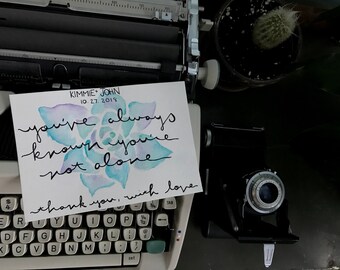 KIMMIE + JOHN
10.27.2018
you've always
known you're
not alone
thank you, with love